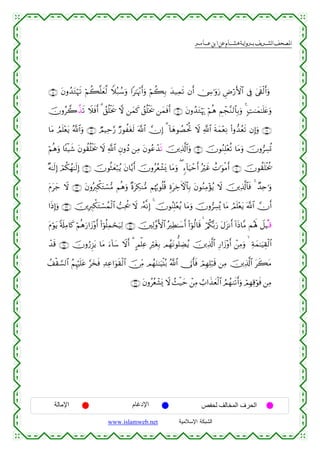 المصحف الشريف برواية هشام عن ابن عامر
وَأَلْقَىٰ فِى ٱلْأَرْضِ رَوَٰسِىَ أَن تَمِيدَ بِكُمْ وَأَنْهَٰرًا وَسُبُلًا لَّعَلَّكُمْ تَهْتَدُونَ ۝
وَعَلَٰمَٰتٍ ۚ وَبِٱلنَّجْمِ هُمْ يَهْتَدُونَ ۝ أَفَمَن يَخْلُقُ كَمَن لَّا يَخْلُقُ ۗ أَفَلَا تَذَّكَّرُونَ
۝ وَإِن تَعُدُّوا۟ نِعْمَةَ ٱللَّهِ لَا تُحْصُوهَآ ۗ إِنَّ ٱللَّهَ لَغَفُورٌ رَّحِيمٌ ۝ وَٱللَّهُ يَعْلَمُ مَا
تُسِرُّونَ وَمَا تُعْلِنُونَ ۝ وَٱلَّذِينَ تَدْعُونَ مِن دُونِ ٱللَّهِ لَا يَخْلُقُونَ شَيْـًٔا وَهُمْ
يُخْلَقُونَ ۝ أَمْوَٰتٌ غَيْرُ أَحْيَآءٍ ۖ وَمَا يَشْعُرُونَ أَيَّانَ يُبْعَثُونَ ۝ إِلَٰهُكُمْ إِلَٰهٌ
وَٰحِدٌ ۚ فَٱلَّذِينَ لَا يُؤْمِنُونَ بِٱلْأَخِرَةِ قُلُوبُهُم مُّنكِرَةٌ وَهُم مُّسْتَكْبِرُونَ ۝ لَا جَرَمَ
أَنَّ ٱللَّهَ يَعْلَمُ مَا يُسِرُّونَ وَمَا يُعْلِنُونَ ۚ إِنَّهُۥ لَا يُحِبُّ ٱلْمُسْتَكْبِرِينَ ۝ وَإِذَا
قِيلَ لَهُم مَّاذَآ أَنزَلَ رَبُّكُمْ ۙ قَالُوٓا۟ أَسَٰطِيرُ ٱلْأَوَّلِينَ ۝ لِيَحْمِلُوٓا۟ أَوْزَارَهُمْ كَامِلَةً يَوْمَ
ٱلْقِيَٰمَةِ ۙ وَمِنْ أَوْزَارِ ٱلَّذِينَ يُضِلُّونَهُم بِغَيْرِ عِلْمٍ ۗ أَلَا سَآءَ مَا يَزِرُونَ ۝ قَدْ
مَكَرَ ٱلَّذِينَ مِن قَبْلِهِمْ فَأَتَى ٱللَّهُ بُنْيَٰنَهُم مِّنَ ٱلْقَوَاعِدِ فَخَرَّ عَلَيْهِمُ ٱلسَّقْفُ
مِن فَوْقِهِمْ وَأَتَىٰهُمُ ٱلْعَذَابُ مِنْ حَيْثُ لَا يَشْعُرُونَ ۝
الحرف المخالف لحفص الإدغام الإمالة
الشبكة الإسلامية www.islamweb.net